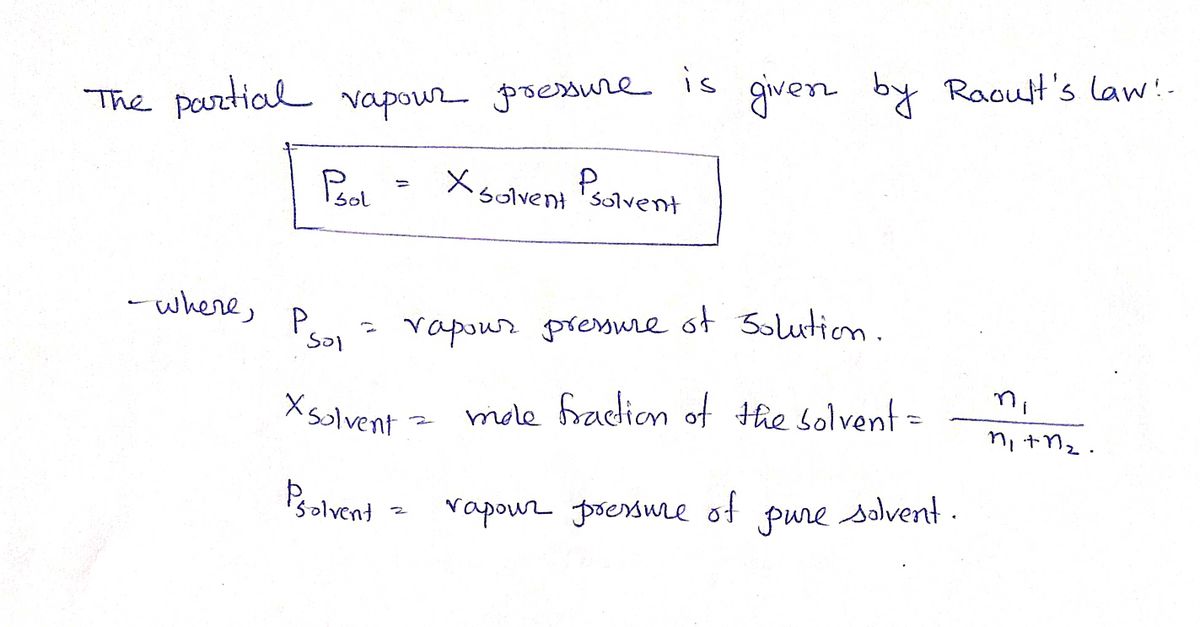 The partial vapour pressure is given by Raoult's law:-
Psol = Xsolvent Psolvent
- where, Psol = vapour pressure of solution.
Xsolvent = mole fraction of the solvent = n1/n1+n2.
Psolvent = vapour pressure of pure solvent.